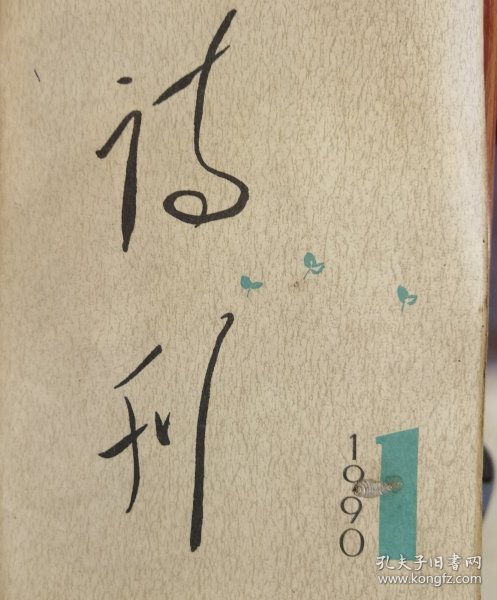 诗刊
1990
1
孔夫子旧书网
www.kongfz.com